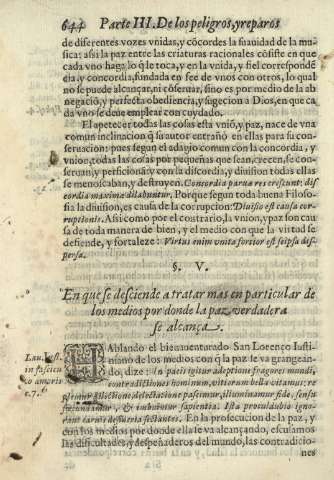 644 Parte III. De los peligros, y reparos
de diferentes vozes vnidas, y cõcordes la suauidad de la mu-
sica: assi la paz entre las criaturas racionales cõsiste en que
cada vno haga lo q̃ le toca, y en la vnida, y fiel correspondẽ
cia, y concordia, fundada en fee de vnos con otros, lo qual
no se puede alcançar, ni cõseruar, sino es por medio de la ab
negació, y perfecta obediencia, y sugecion a Dios, en que ca
da vno se deue emplear con cuydado.
El apetecer todas las cosas esta vnió, y paz, nace de vna
comun inclinacion q̃ su autor entrañó en ellas para su con-
seruacion: pues segun el adagio comun con la concordia, y
vnion, todas las cosas por pequeñas que sean, crecen, se con-
seruan, y perficionã: y con la discordia, y diuision todas ellas
se menoscaban, y destruyen. Concordia paruæ res crescunt: dis
cordia maximæ dilabuntur. Porque segun toda buena Filoso-
fia la diuision, es causa de la corrupcion: Diuisio est causa cor-
ruptionis. Assi como por el contrario, la vnion, y paz son cau
sa de toda manera de bien, y el medio con que la virtud se
defiende, y fortaleze: Virtus enim vnita fortior est seipsa dis-
persa.
§. V.
En que se desciende a tratar mas en particular de
los medios por donde la paz verdadera
se alcança.
HAblando el bienauenturado San Lorenço Iusti-
niano de los medios con q̃ la paz se va grangean-
do, dize: In pacis igitur adeptione frangere mundi,
contradictiones hominum, vitiorum bella vitamus: re
Lau. Iust.
in fascicu
lo amoris
c. 7.
pascimur, illuminamur fide, sensu
sapientia. Ista
En la prosecucion de la paz, y
con los medios por donde ella se va alcançando, escusamos
las dificultades, y despeñaderos del mundo, las contradicio-
nes